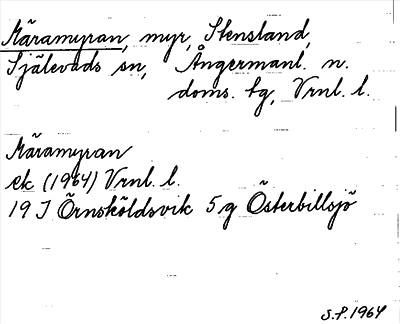 Märamyran, myr, Stensland,
Själevads sn, Ångermanl. n.
doms. tg, Vrnl. l.
Märamyran
ek (1964) Vrnl. l.
19 J Örnsköldsvik 5 g Österbillsjö
S.P. 1964